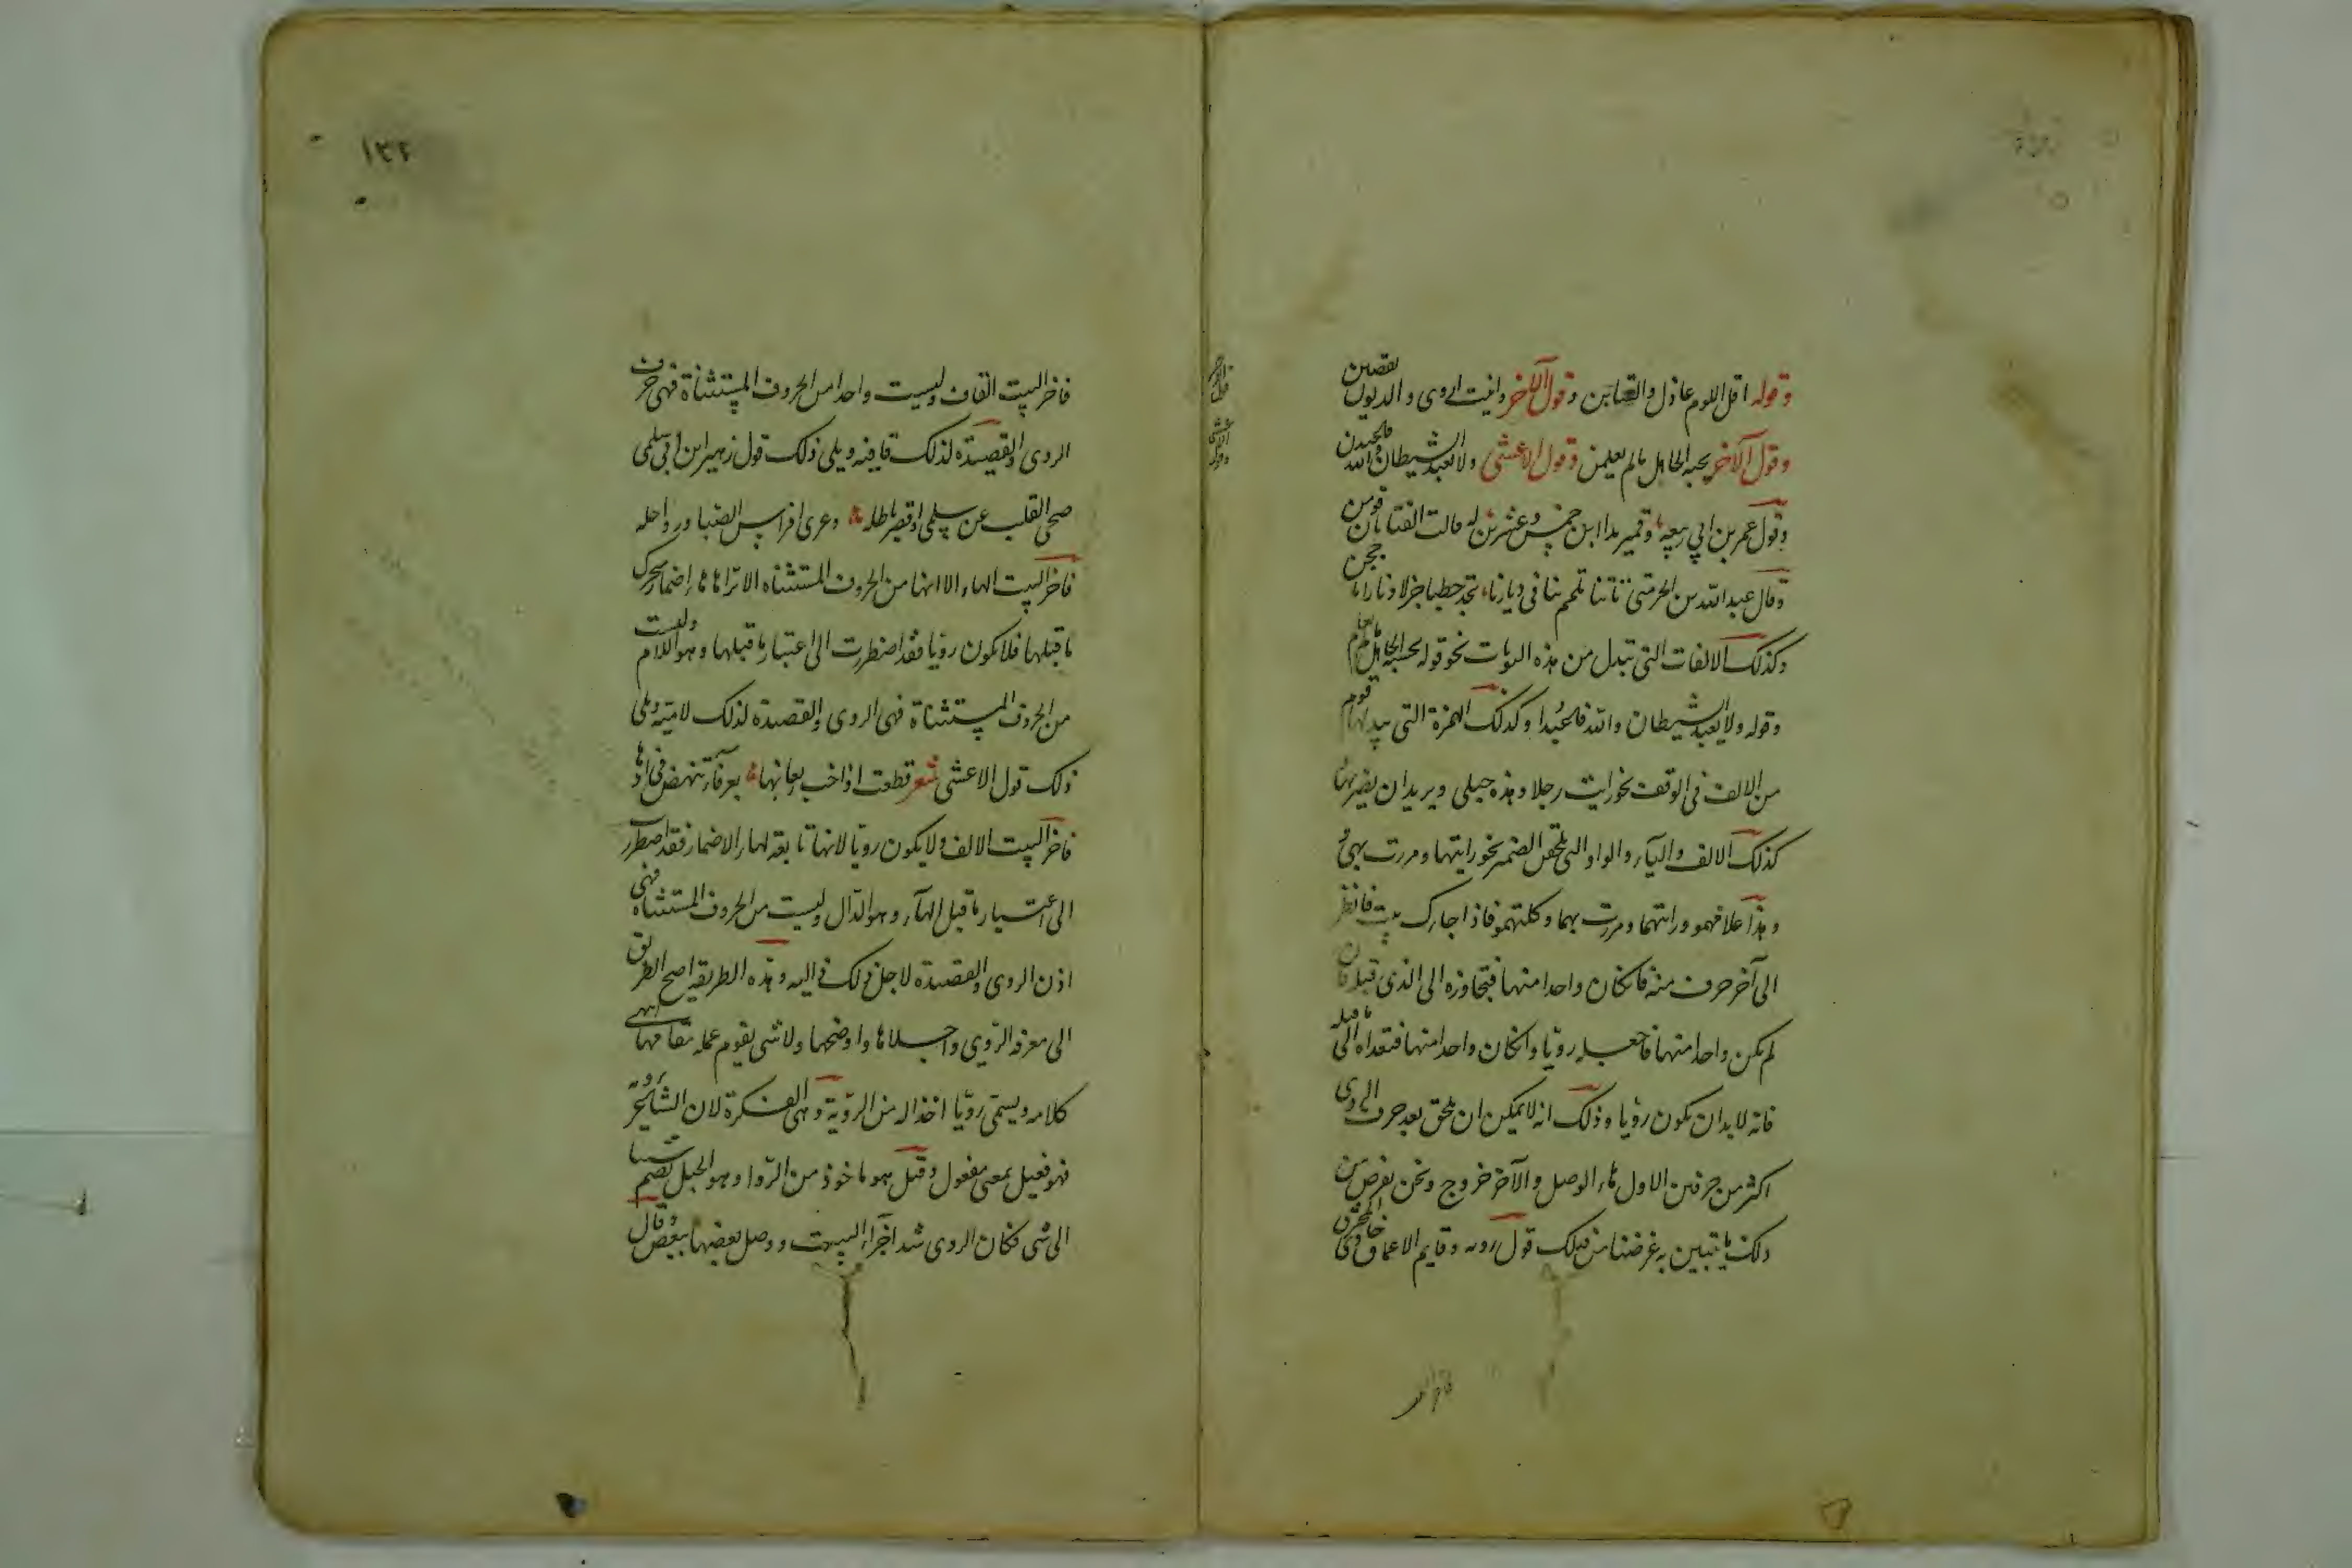 وقوله اقل اللوم عاذل والعتابن وقول الآخر داينت اروى والديون تقضين
وقول الآخر يحسبه الجاهل ما لم يعلمن وقول الاعشى ولا تعبد الشيطان والله فاعبدن
وقول عمر بن ابي ربيعه وقمير بدا ابن خمس وعشرين له قالت الفتاتان قومن
وقال عبد الله بن الحر متى تاتنا تلمم بنا في ديارنا تجد حطبا جزلا ونارا تاججن
وكذلك الالفات التي تبدل من هذه النونات نحو قوله يحسبه الجاهل ما لم يعلما
وقوله ولا تعبد الشيطان والله فاعبدا وكذلك الهمزة التي يبدلها قوم
من الالف في الوقف نحو رايت رجلا وهذه حبلى ويريد ان يضربها
كذلك الالف والياء والواو التي تلحق الضمير نحو رايتها ومررت بهي
وهذا غلامهمو ورايتهما ومررت بهما وكلمتهمو فاذا جاءك بيت فانظر
الى آخر حرف منه فان كان واحدا منها فتجاوزه الى الذي قبله فان
لم يكن واحدا منها فاجعله رويا وان كان واحدا منها فتعداه الى ما قبله
فانه لا بد ان يكون رويا وذلك انه لا يمكن ان يلحق بعد حرف الروى
اكثر من حرفين الاول هاء الوصل والآخر خروج ونحن نفرض من
ذلك ما يتبين به غرضنا من ذلك قول روبه وقايم الاعماق خاوى المخترق
فاخر البيت القاف وليست واحدا من الحروف المستثناة فهي حرف
الروى والقصيدة لذلك قافيه ويلي ذلك قول زهير ابن ابي سلمى
صحى القلب عن سلمى اقصر باطله وعرى افراس الصبا ورواحله
فاخر البيت الهاء الا انها من الحروف المستثناه الا تراها هاء اضمار محرك
ما قبلها فلا تكون رويا فقد اضطررت الى اعتبار ما قبلها وهو اللام وليست
من الحروف المستثناة فهى الروى والقصيدة لذلك لاميه ويلى
ذلك قول الاعشى شعر قطعت اذا خب ريعانها بعرفاء تنهض في آدها
فاخر البيت الالف ولا يكون رويا لانها تابعة لهاء الاضمار فقد اضطررت
الى اعتبار ما قبل الهاء وهو الدال وليست من الحروف المستثناه فهى
اذن الروى والقصيدة لاجل ذلك داليه وهذه الطريقه اصح الطريق
الى معرفه الروي واجلاها واوضحها ولا شى يقوم عمله مقامها انتهى
كلامه ويسمى رويا اخذا له من الروية وهى الفكرة لان الشاعر يرويه
فهو فعيل بمعنى مفعول وقيل هو ماخوذ من الروا وهو الحبل يضم شيا
الى شى فكان الروى شد اجزاء البيت ووصل بعضها ببعض وقال
١٣٢